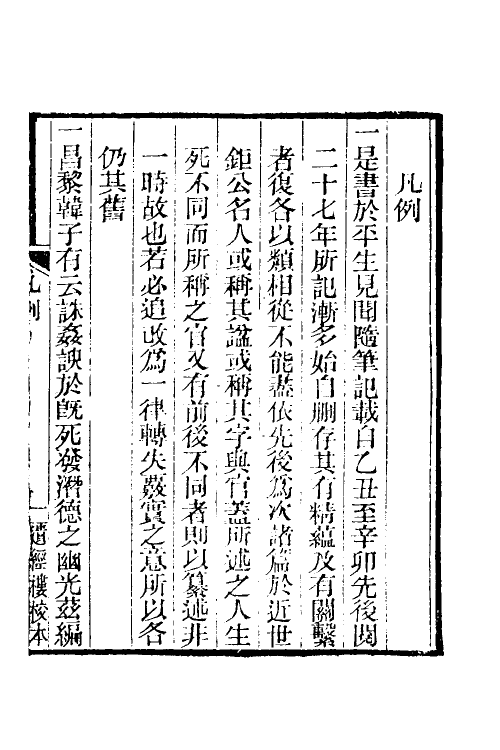 凡例
一是書於平生見聞隨筆記載自乙丑至辛卯先後閱
二十七年所記漸多始自刪存其有精蘊及有關繫
者復各以類相從不能盡依先後爲次諸篇於近世
鉅公名人或稱其諡或稱其字與官蓋所述之人生
死不同而所稱之官又有前後不同者則以纂述非
一時故也若必追改爲一律轉失覈實之意所以各
仍其舊
一昌黎韓子有云誅姦諛於旣死發潛德之幽光茲編
凡例
一
遺經樓校本